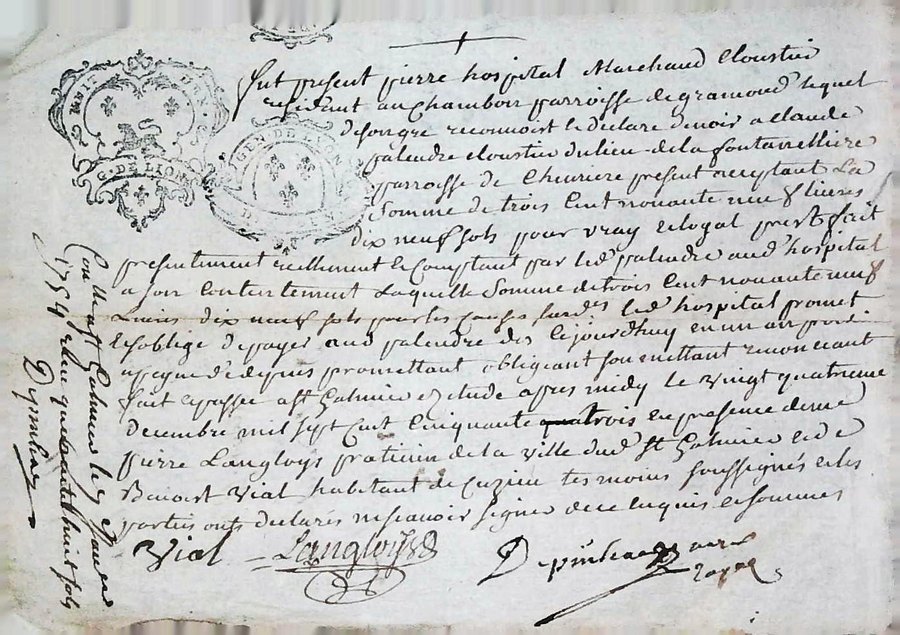 GEN. DE LYON
G. DE LYON
fut present pierre hospital Marchand Cloustier
residant au Chambon parroisse de gramond lequel
de son gre reconnoist et declare devoir a Claude
palendre cloustier du lieu de la fontanelliere
parroisse de Chevriere present acceptant La
Somme de trois Cent nonante neuf livres
dix neuf sols pour vray et loyal prest fait
presentement reellement et Comptant par led palendre aud hospital
a son Contentement Laquelle Somme de trois Cent nonante neuf
Livres dix neuf sols pour les Causes susd.es led hospital promet
et soblige de payer aud palendre des Cejourdhuy en un an
a peyne de depens promettant obligeant soumettant renonceant
fait et passe a St Galmier etude apres midy le Vingt quatrieme
decembre mil sept Cent Cinquante trois en presence de me
pierre Langloys praticien de la Ville dud St Galmier et de
Benoist Vial habitant de Cuzieu tesmoins soussignés et les
parties onts declarés ne scavoir signer de ce enquis et sommes
Vial Langloys
Con a St Galmier le 7 Janvier
1754 Reçu quarante huit sols